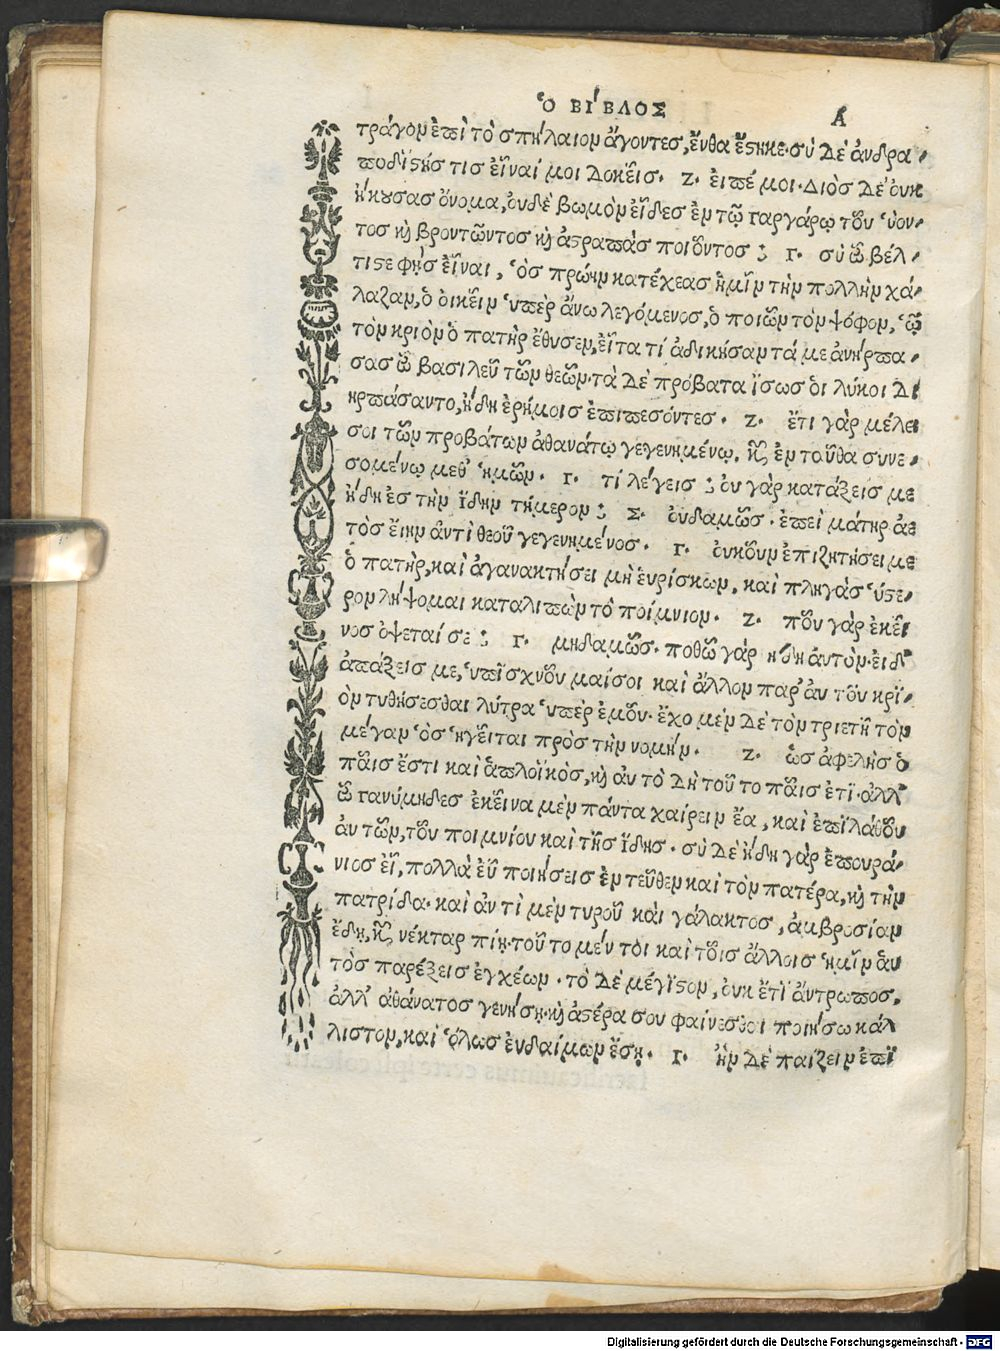 Ὁ ΒΊΒΛΟΣ Α
τράγον ἐπὶ τὸ σπήλαιον ἄγοντες, ἔνθα ἔϛηκε· σὺ δὲ ἀνδρα
ποδιϛής τις εἶναί μοι δοκεῖς. Ζ. εἰπέ μοι· Διὸς δὲ οὐκ
ἤκουσας ὄνομα, οὐδὲ βωμὸν εἶδες ἐν τῷ γαργάρῳ τοῦ ὕον
τος κὴ βροντῶντος κὴ ἀϛραπὰς ποιοῦντος; Γ. σὺ ὦ βέλ
τιϛε φῂς εἶναι, ὃς πρώην κατέχεας ἡμῖν τὴν πολλὴν χά
λαζαν, ὁ οἰκεῖν ὑπὲρ ἄνω λεγόμενος, ὁ ποιῶν τὸν ψόφον, ᾧ
τὸν κριὸν ὁ πατὴρ ἔθυσεν, εἶτα τί ἀδικήσαντά με ἀνήρπα
σας ὦ βασιλεῦ τῶν θεῶν· τὰ δὲ πρόβατα ἴσως ὁι λύκοι δι
ηρπάσαντο, ἤδη ἐρήμοις ἐπιπεσόντες. Ζ. ἔτι γὰρ μέλει
σοι τῶν προβάτων ἀθανάτῳ γεγενημένῳ. κὴ ἐν ταῦθα συνε
σομένῳ μεθ' ἡμῶν. Γ. τί λέγεις; οὐ γὰρ κατάξεις με
ἤδη ἐς τὴν ἴδην τήμερον; Σ. οὐδαμῶς. ἐπεὶ μάτην ἀε
τὸς εἴην ἀντὶ θεοῦ γεγενημένος. Γ. οὐκοῦν ἐπιζητήσει με
ὁ πατὴρ, καὶ ἀγανακτήσει μὴ ἑυρίσκων, καὶ πληγὰς ὕϛε
ρον λήψομαι καταλιπὼν τὸ ποίμνιον. Ζ. ποῦ γὰρ ἐκεῖ
νος ὄψεταί σε; Γ. μηδαμῶς· ποθῶ γὰρ ἤδη ἀυτὸν· εἰ δ'
ἀπάξεις με, ὑπισχνοῦ μαί σοι καὶ ἄλλον παρ' ἀυ τοῦ κρι
ὸν τυθήσεσθαι λύτρα ὑπὲρ ἐμοῦ· ἔχο μεν δὲ τὸν τριετῆ τὸν
μέγαν ὃς ἡγεῖται πρὸς τὴν νομήν. Ζ. ὡς ἀφελὴς ὁ
παῖς ἔστι καὶ ἁπλοϊκὸς, κὴ ἀυ τὸ δὴ τοῦ το παῖς ἔτι· ἀλλ'
ὦ γανύμηδες ἐκεῖνα μὲν πάντα χαίρειν ἔα, καὶ ἐπιλάθου
ἀυ τῶν, τοῦ ποιμνίου καὶ τῆς ἴδης· σὺ δὲ ἤδη γὰρ ἐπουρά
νιος εἶ, πολλὰ εὖ ποιήσεις ἐν τεῦθεν καὶ τὸν πατέρα, κὴ τὴν
πατρίδα· καὶ ἀν τὶ μὲν τυροῦ καὶ γάλακτος, ἀμβροσίαν
ἔδῃ, κὴ νέκταρ πίῃ· τοῦ το μέν τοι καὶ τοῖς ἄλλοις ἡμῖν ἀυ
τὸς παρέξεις ἐγχέων· τὸ δὲ μέγιϛον, οὐκ ἔτι ἄντρωπος,
ἀλλ' ἀθάνατος γενήσῃ· κὴ ἀϛέρα σου φαίνεσθαι ποιήσω κάλ
λιστον, καὶ ὅλως ἐυδαίμων ἔσῃ. Γ. ἢν δὲ παίζειν ἐπι
Digitalisierung gefördert durch die Deutsche Forschungsgemeinschaft - DFG